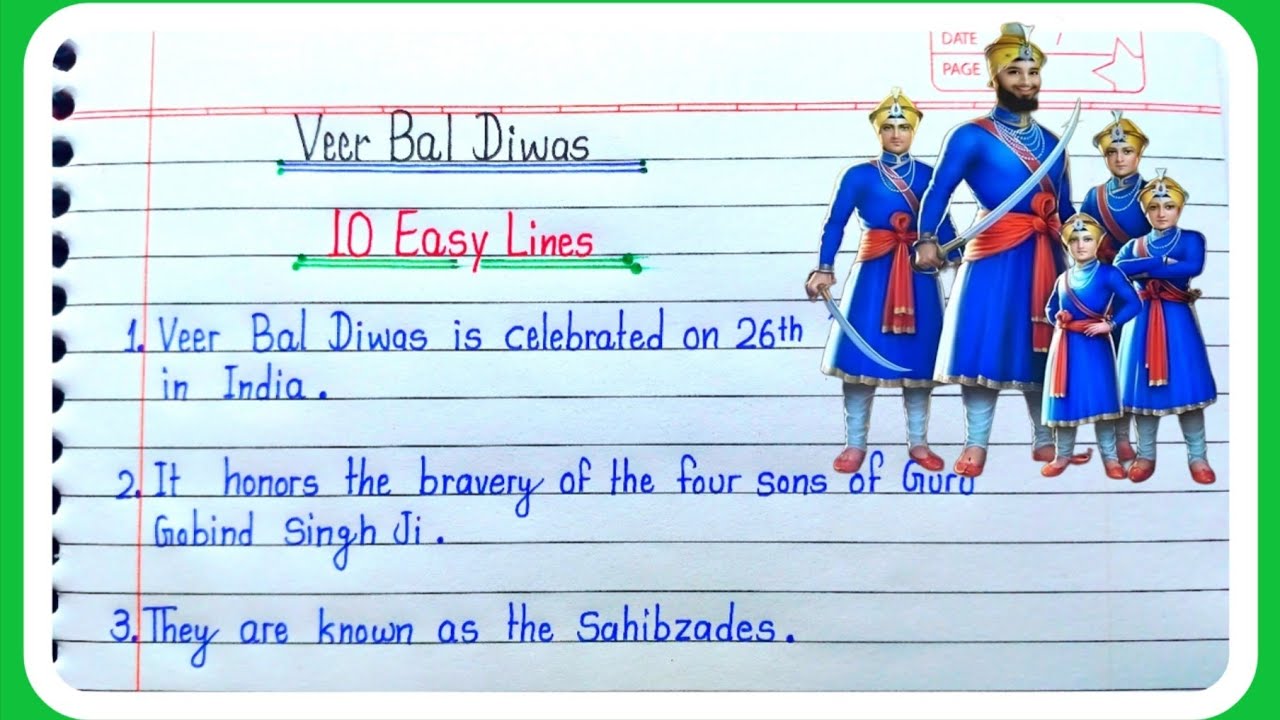 DATE
PAGE
Veer Bal Diwas
10 Easy Lines
1. Veer Bal Diwas is celebrated on 26th
in India.
2. It honors the bravery of the four sons of Guru
Gobind Singh Ji.
3. They are known as the Sahibzades.